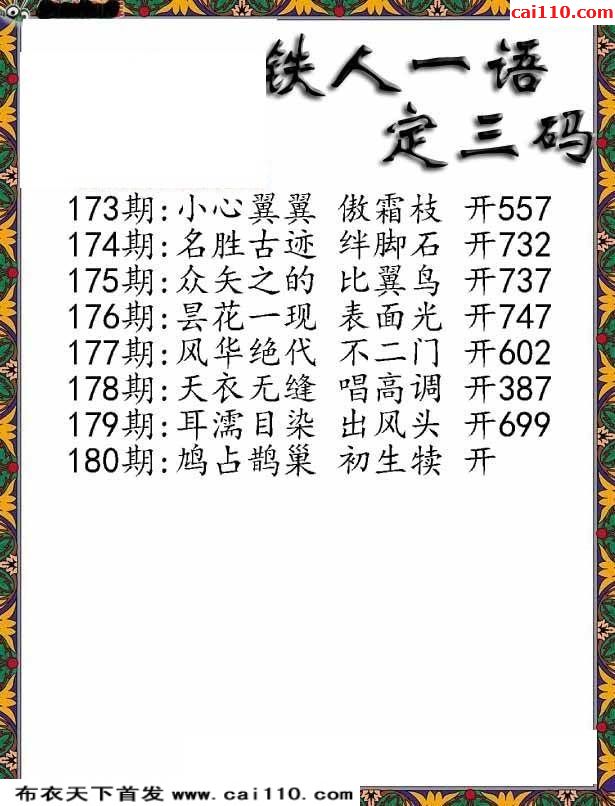 cai110.com
铁人一语
定三码
173期:小心翼翼 傲霜枝 开557
174期:名胜古迹 绊脚石 开732
175期:众矢之的 比翼鸟 开737
176期:昙花一现 表面光 开747
177期:风华绝代 不二门 开602
178期:天衣无缝 唱高调 开387
179期:耳濡目染 出风头 开699
180期:鸠占鹊巢 初生犊 开
布衣天下首发 www.cai110.com